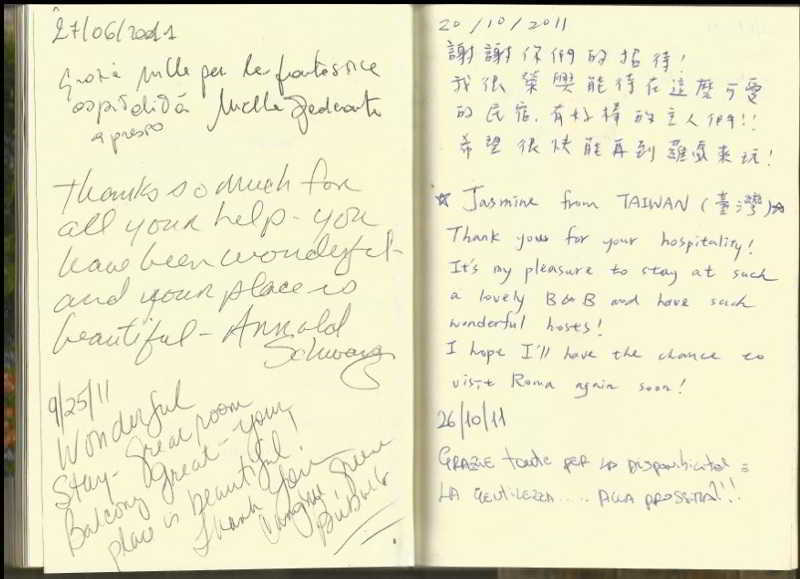 27/06/2011
Grazie mille per la fantastica
ospitalità
a presto
Thanks so much for
all your help - you
have been wonderful -
and your place is
beautiful - Arnold
Schwarz
9/25/11
Wonderful
Stay - Great room
Balcony great - your
place is beautiful!
Thank You
20/10/2011
謝謝你們的招待!
我很榮興能待在這麼可愛
的民宿,有好棒的主人們!!
希望很快能再到羅馬來玩!
☆ Jasmine from TAIWAN (臺灣)☆
Thank you for your hospitality!
It's my pleasure to stay at such
a lovely B&B and have such
wonderful hosts!
I hope I'll have the chance to
visit Roma again soon!
26/10/11
GRAZIE tante PER LA DISPONIBILITÀ e
LA GENTILEZZA .... ALLA PROSSIMA!!!